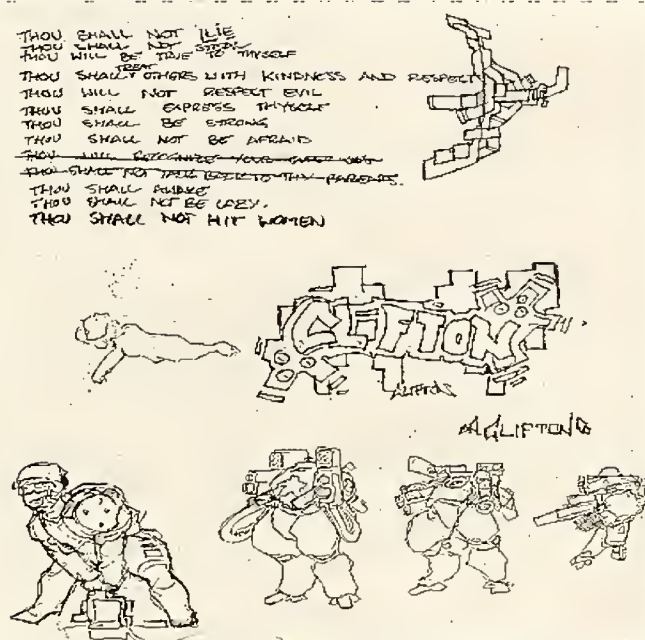 THOU SHALL NOT LIE
THOU SHALL NOT STEAL
THOU WILL BE TRUE TO THYSELF
THOU SHALL TREAT OTHERS WITH KINDNESS AND RESPECT
THOU WILL NOT RESPECT EVIL
THOU SHALL EXPRESS THYSELF
THOU SHALL BE STRONG
THOU SHALL NOT BE AFRAID
THOU WILL RECOGNIZE YOUR
THOU SHALL NOT TALK BACK TO THY PARENTS.
THOU SHALL AWAKE
THOU SHALL NOT BE LAZY.
THOU SHALL NOT HIT WOMEN
CLIFTON
CLIFTON